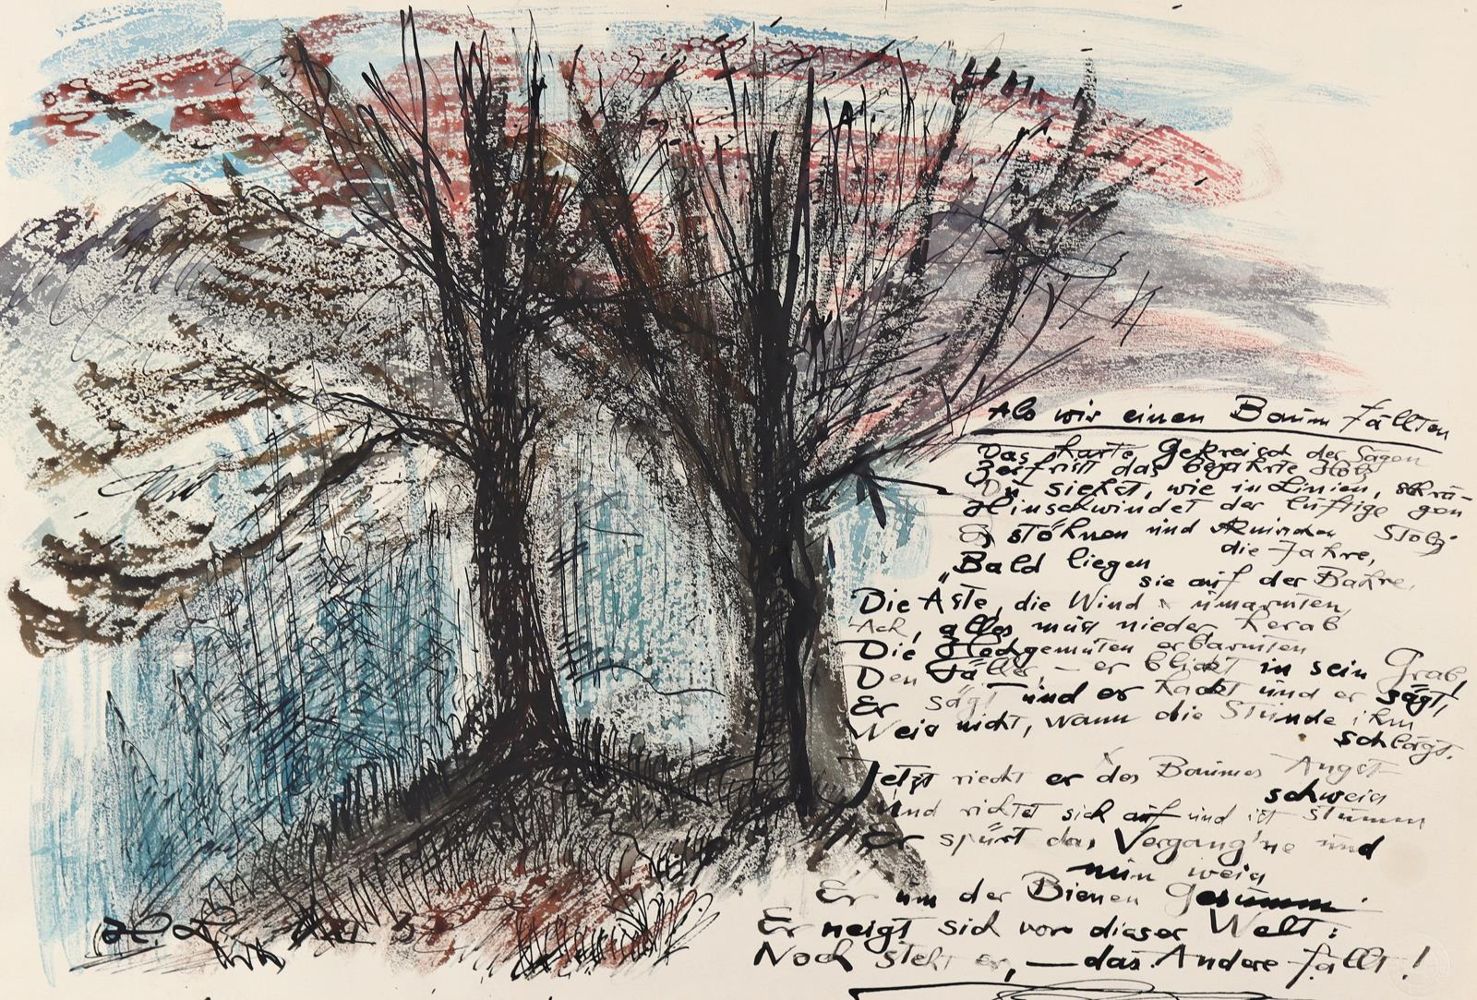 Als wir einen Baum fällten
Das harte Gekreisch der Sägen
Zerfrißt das bejahrte Holz
Du siehst, wie in Linien, schrä-
gen
Hinschwindet der luftige Stolz.
Es stöhnen und die Jahre,
Bald liegen sie auf der Bahre,
Die Äste, die Wind umarmten,
Ach, alles muß nieder herab
Die Hochgemuten erbarmten
Den Fäller, – er blickt in sein Grab,
Er sägt und er hackt und er sägt,
Weiß nicht, wann die Stunde ihm
schlägt.
Jetzt riecht er des Baumes Angst-
schweiß
Und richtet sich auf und ist stumm
Er spürt das Vergang'ne und
nun weiß
Er um der Bienen Gesumm.
Er neigt sich vor dieser Welt:
Noch steht er, – das Andere fällt!